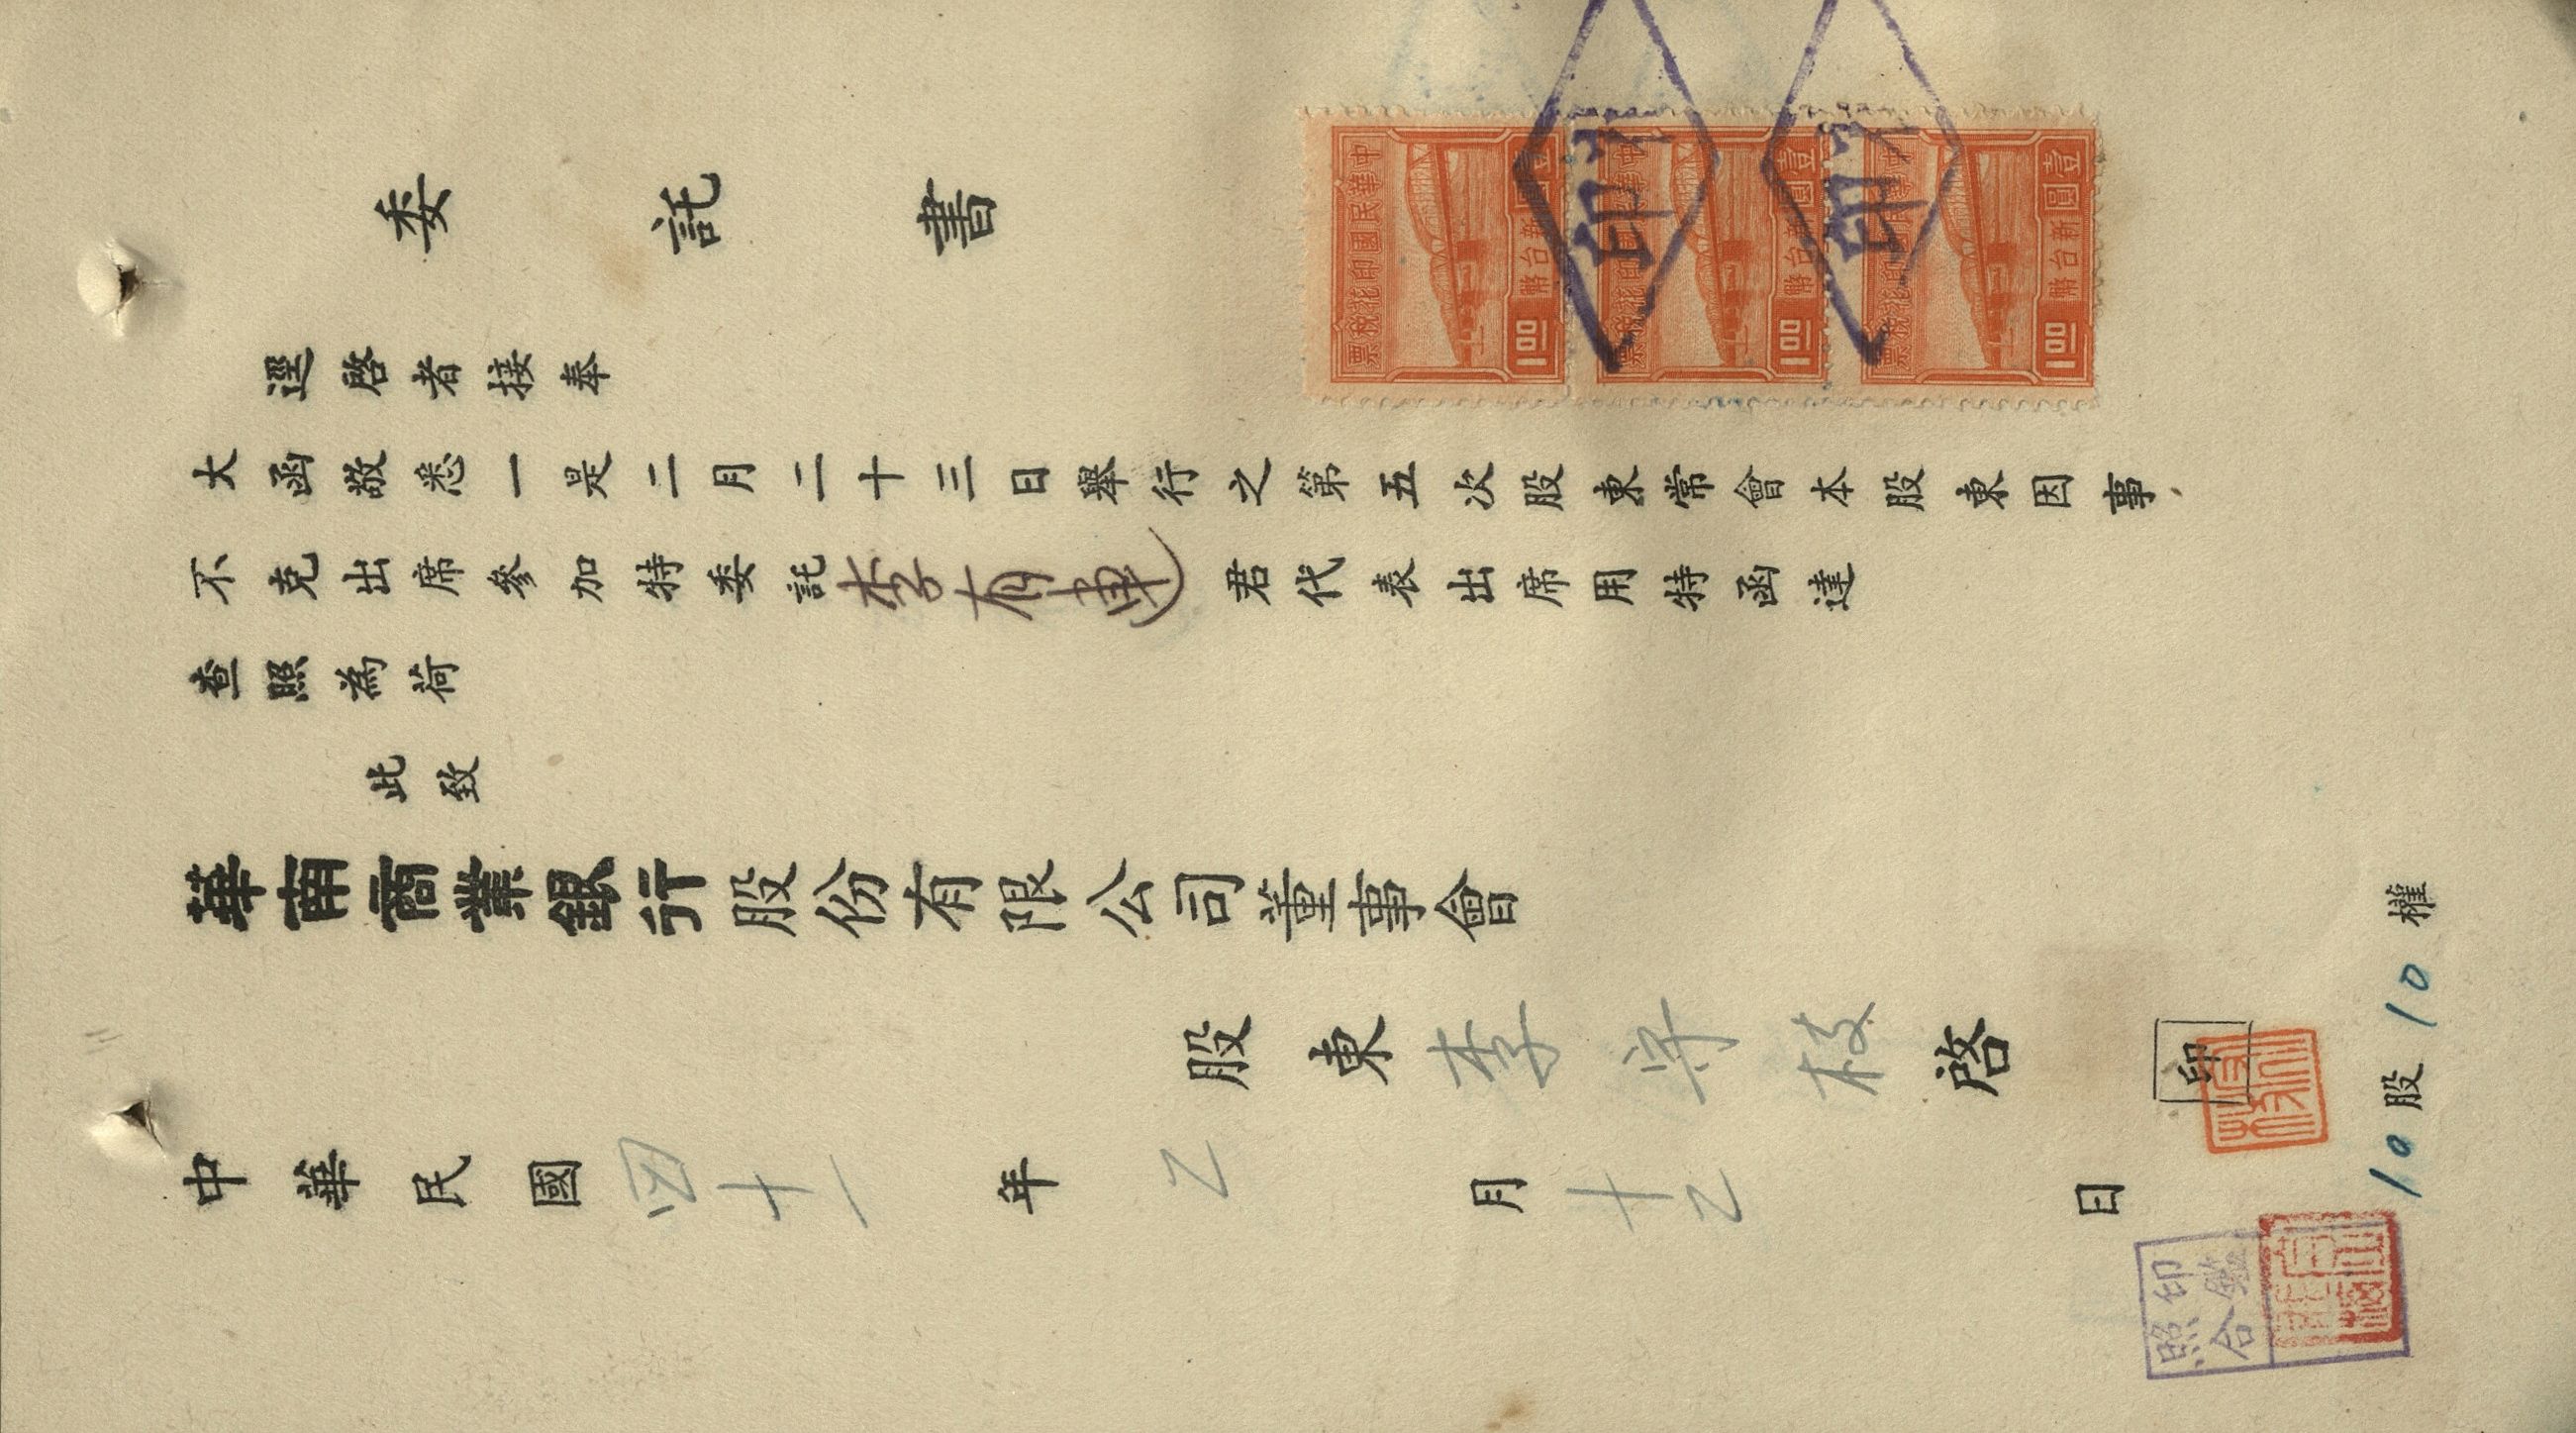 委託書
逕啓者接奉
大函敬悉一是二月二十三日舉行之第五次股東常會本股東因事
不克出席參加特委託李有連君代表出席用特函達
查照為荷
此致
華南商業銀行股份有限公司董事會
股東李守枝啓 印
中華民國四十一年2月十2日
10股10權
中華民國印花稅票
壹圓
新台幣
1.00
中華民國印花稅票
壹圓
新台幣
1.00
中華民國印花稅票
壹圓
新台幣
1.00
印
印
印鑑
照合